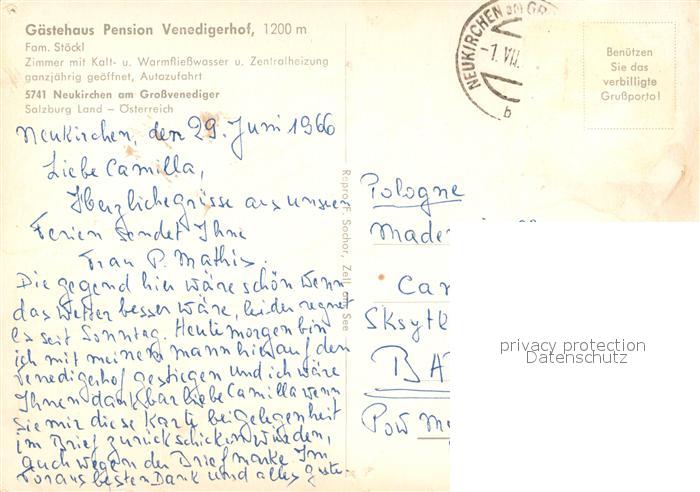 Gästehaus Pension Venedigerhof, 1200 m
Fam. Stöckl
Zimmer mit Kalt- u. Warmfließwasser u. Zentralheizung
ganzjährig geöffnet, Autozufahrt
5741 Neukirchen am Großvenediger
Salzburg Land – Österreich
Neukirchen, den 29. Juni 1966
Liebe Camilla,
Herzliche grüsse aus unsern
Ferien sendet Ihne
Frau P. Mathis.
Die gegend hier wäre schön wenn
das Wetter besser wäre, leider regnet
es seit Sonntag. Heute morgen bin
ich mit meinem mann hier auf den
Venedigerhof gestiegen und ich wäre
Ihnen dankbar liebe Camilla wenn
Sie mir diese Karte bei gelegenheit
im Brief zurückschicken würden,
auch wegen der Briefmarke Im
Voraus besten Dank und alles gute.
Repro: F. Sochor, Zell am See
NEUKIRCHEN am GR
-1. VII.
b
Benützen
Sie das
verbilligte
Grußporto!
Pologne
Made
Car
Skytł
BA
Pow
privacy protection
Datenschutz